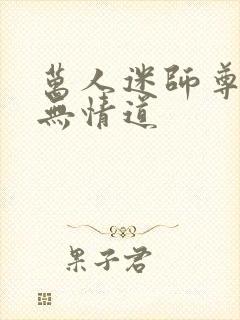 萬人迷師尊
無情道
果子君